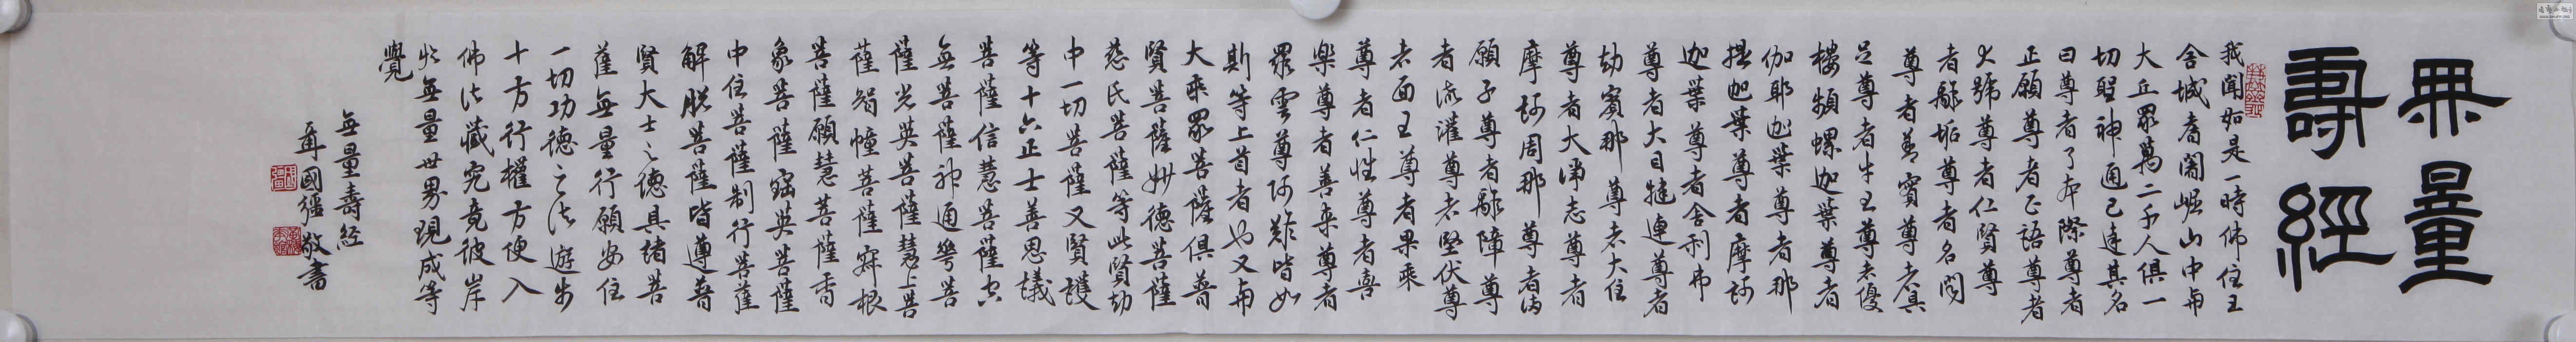 無量
壽經
我聞如是一時佛住王
舍城耆闍崛山中与
大丘眾萬二千人俱一
切聖神通已達其名
曰尊者了本際尊者
正願尊者正語尊者
大號尊者仁賢尊
者離垢尊者名聞
尊者善賓尊者具
足尊者牛王尊者優
樓頻螺迦葉尊者
伽耶迦葉尊者那
提迦葉尊者摩訶
迦葉尊者舍利弗
尊者大目犍連尊者
劫賓那尊者大住
尊者大淨志尊者
摩訶周那尊者滿
願子尊者離障尊
者流灌尊者堅伏尊
者面王尊者果乘
尊者仁性尊者喜
樂尊者善來尊者
羅雲尊阿難皆如
斯等上首者也又与
大乘眾菩薩俱普
賢菩薩妙德菩薩
慈氏菩薩等此賢劫
中一切菩薩又賢護
等十六正士善思議
菩薩信慧菩薩空
無菩薩神通華菩
薩光英菩薩慧上菩
薩智幢菩薩寂根
菩薩願慧菩薩香
象菩薩寶英菩薩
中住菩薩制行菩薩
解脫菩薩皆遵普
賢大士之德具諸菩
薩無量行願安住
一切功德之法遊步
十方行權方便入
佛法藏究竟彼岸
於無量世界現成等
覺
無量壽經
國疆敬書